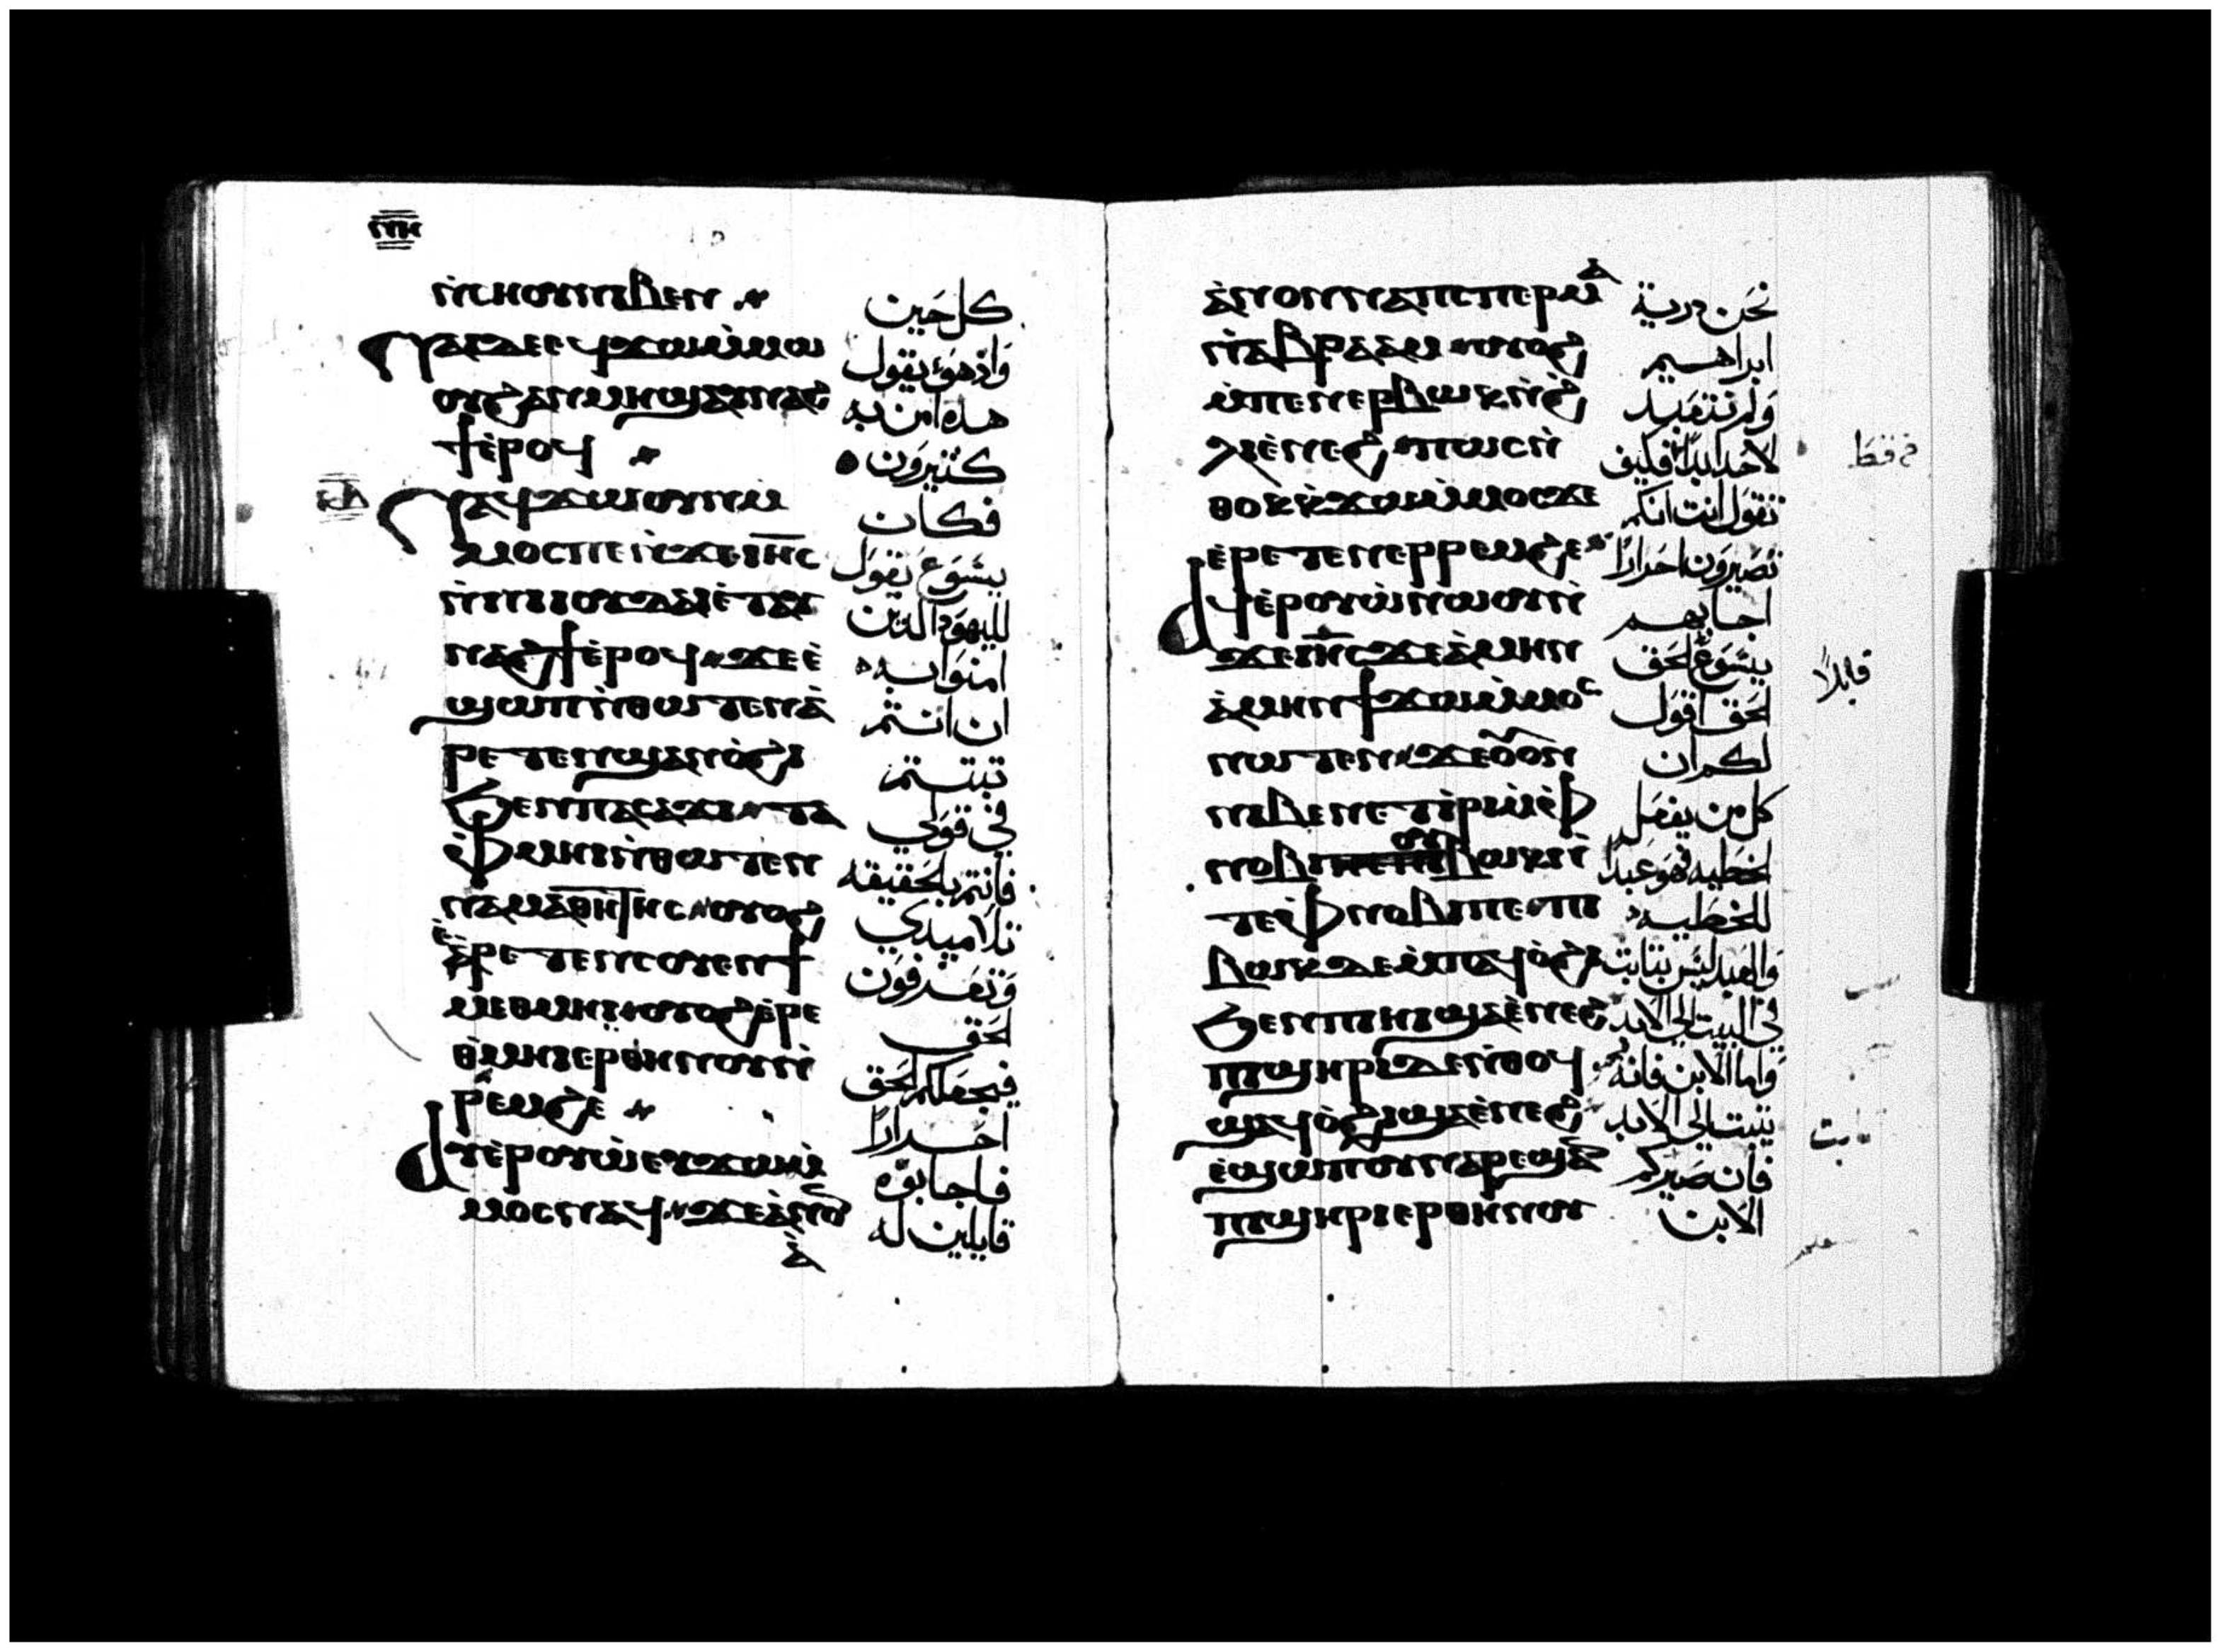 ⲛ̅ⲏ̅
ⲛ̀ⲥⲏⲟⲩⲛⲓⲃⲉⲛ
ⲛⲁⲓⲇⲉⲉϥϫⲱⲙ̀ⲙⲱ
ⲟⲩϩⲁⲛⲙⲏϣⲁⲩⲛⲁϩ
ϯⲉ̀ⲣⲟϥ
ⲛⲁϥϫⲱⲟⲩⲛⲙ̀
ⲙⲟⲥⲡⲉⲛ̀ϫⲉⲓⲏ̅ⲥ
ⲛ̀ⲛⲓⲓⲟⲩⲇⲁⲓⲉ̀ⲧⲁⲩ
ⲛⲁϩϯⲉ̀ⲣⲟϥϫⲉⲉ̀
ϣⲱⲡⲛ̀ⲑⲱⲧⲉⲛⲁ̀
ⲣⲉⲧⲉⲛϣⲁⲛⲟ̀ϩⲓ
ϧⲉⲛⲡⲁⲥⲁϫⲓⲧⲁ
ⲫⲙⲏⲓⲛ̀ⲑⲱⲧⲉⲛ
ⲛⲁⲙⲁⲑⲏⲧⲏⲥⲟⲩⲟϩ
ⲉ̀ⲣⲉⲧⲉⲛⲥⲟⲩⲉⲛϯ
ⲙⲉⲑⲙⲏⲓⲟⲩⲟϩⲉ̀ⲣⲉ
ⲑ̀ⲙⲏⲓⲉⲣⲑⲏⲛⲟⲩⲛ̀
ⲣⲉⲙϩⲉ
ⲁⲩⲉⲣⲟⲩⲱ̀ⲉⲩϫⲱⲙ̀
ⲙⲟⲥⲛⲁϥϫⲉⲁ̀ⲛⲟ
ⲁ̀
كل حَين
وَاذ هوَ يقول
هذه امن به
كثيرَون
فكان
يسَوَع يَقوَل
لليهوَد الذين
امنوَا به
ان انتم
تبتتم
في قوَلي
فانتم بلحَقيقه
تلاميدي
وَتعَرفوَن
لحَق
فيجعَلكم لحَق
احَرارًا
فاجابوَه
قايلين له
ⲁ̀ⲛⲟⲛⲛⲁⲡⲥⲡⲉⲣⲙⲁ
ⲛ̀ⲁⲃⲣⲁⲁⲙⲟⲩⲟϩ
ⲙ̀ⲡⲉⲛⲉⲣⲃⲱⲕⲛ̀ϩ
ⲗⲓⲉ̀ⲛⲉϩⲡⲱⲥⲛ̀
ⲑⲟⲕⲕ̀ϫⲱⲙ̀ⲙⲟⲥϫⲉ
ⲉ̀ⲣⲉⲧⲉⲛⲉⲣⲣⲉⲙϩⲉ
ⲁϥⲉ̀ⲣⲟⲩⲱ̀ⲛⲱⲟⲩⲛ̀
ϫⲉⲓⲏ̅ⲥϫⲉⲁ̀ⲙⲏⲛ
ⲁ̀ⲙⲏⲛϯϫⲱⲙ̀ⲙⲟⲥ
ⲛⲱⲧⲉⲛϫⲉⲟⲩⲟⲛ
ⲛⲓⲃⲉⲛⲉⲧⲓ̀ⲣⲓⲙ̀ⲫ
ⲛⲟⲃⲓⲟⲩⲃⲱⲕⲛ̀
ⲧⲉⲫⲛⲟⲃⲓⲡⲉⲡⲓ
ⲃⲱⲕⲇⲉⲙ̀ⲡⲁϥⲟ̀ϩⲓ
ϧⲉⲛⲡⲓⲏⲓϣⲁⲉ̀ⲛⲉϩ
ⲡϣⲏⲣⲓⲇⲉⲛ̀ⲑⲟϥ
ϣⲁϥⲟ̀ϩⲓϣⲁⲉ̀ⲛⲉϩ
ⲉ̀ϣⲱⲡⲟⲩⲛⲁⲣⲉϣⲁ
ⲡϣⲏⲣⲓⲉⲣⲑⲏⲛⲟⲩ
نحَن درية
ابراهيم
وَلم نتعَبد
لاحَد ابدًا فكيف
تقوَل انت انكم
تصَيروَن احَرارًا
اجابهم
يسَوَع لحَق
لحَق اقوَل
لكم ان
كل من يفعَل
لخطيه فهوَ عبدًا
للخطيه
وَالعَبد ليَس بتابت
في البيت الي الابد
وَاما الابن فانه
يتبت الي الابد
فان صَيركم
الابن
فقط
قايلًا